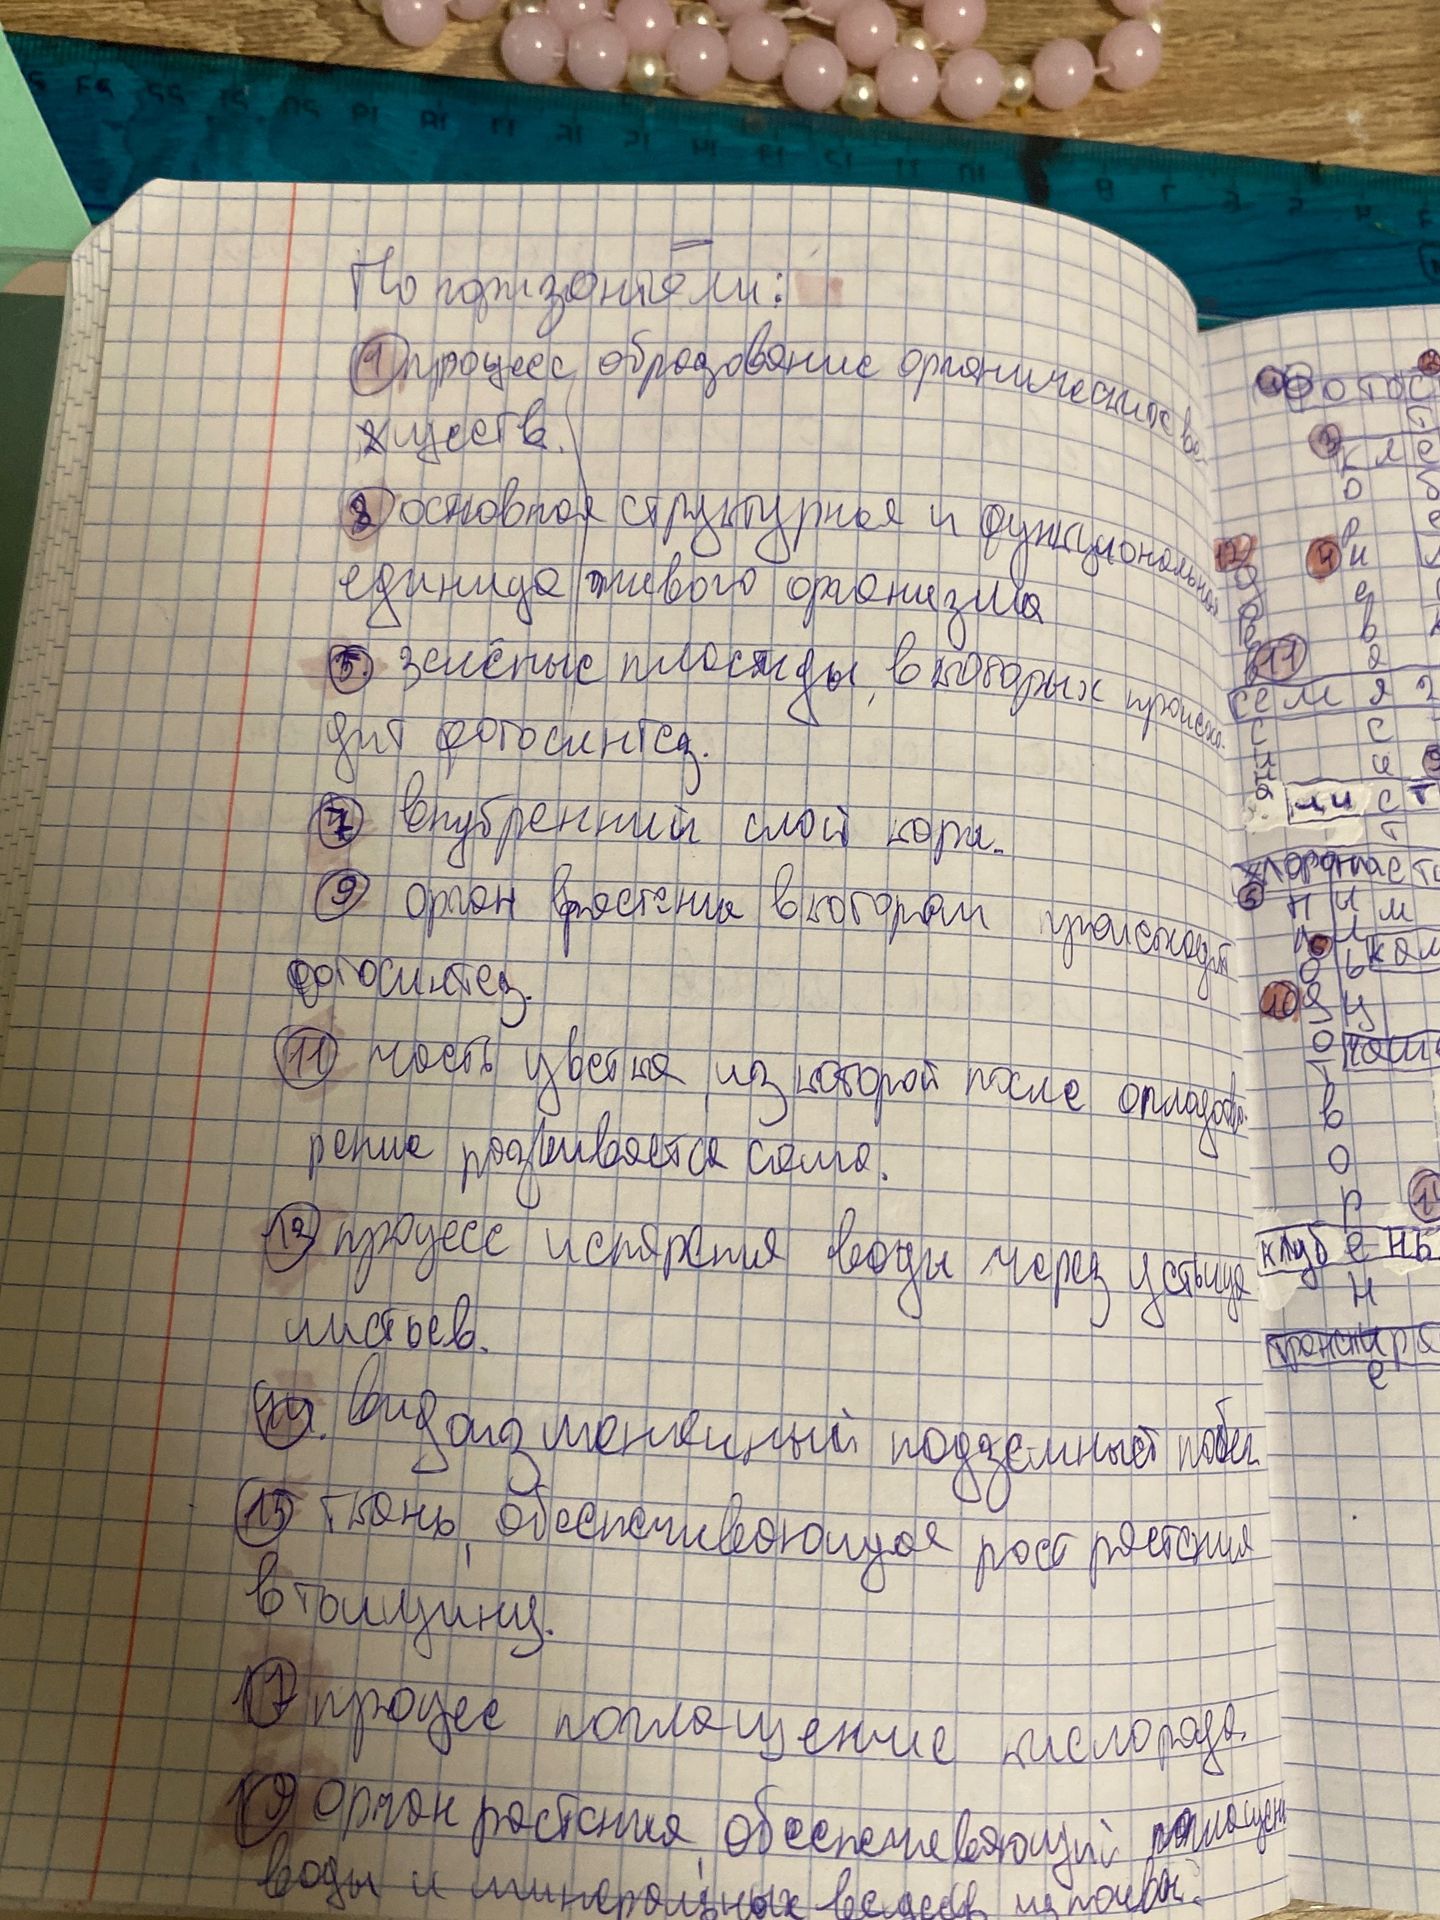 По горизонтали:
1 процесс образование органических ве-
ществ.
3 основная структурная и функциональная
единица живого организма
5. зелёные пластиды, в которых происхо-
дит фотосинтез.
7 внутренний слой коры.
9 орган растения в котором происходит
фотосинтез.
11 часть цветка, из которой после оплодотво-
рение развивается семя.
12 процесс испарения воды через устьица
листьев.
14. видоизмененный подземный побег
15 ткань, обеспечивающая рост растения
в толщину.
17 процес поглащение кислорода.
19 орган растения, обеспечивающий поглащени
воды и минеральных веществ из почвы.
1 фотос
т
3 кле
о б
р е
12 4 и
о е
в в
11 я
семя
с с
и 9
лист
т
хлоропласт
6 п ы м
л л кам
о ь
10 д ц
о
т
в
о
р 14
клубень
н
транспира
е